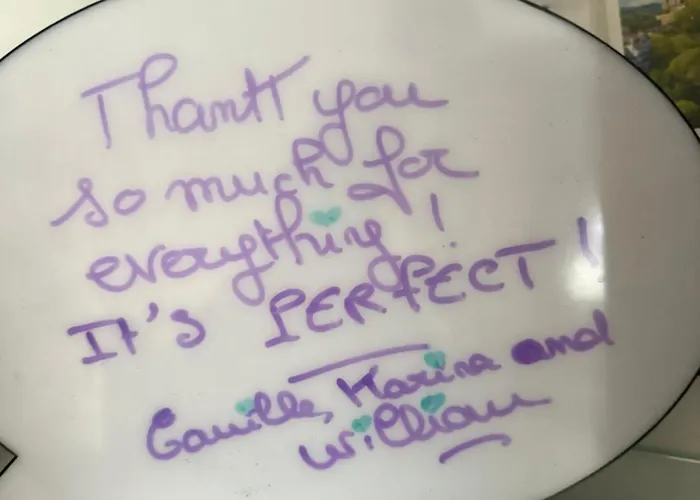 Thank you
so much for
everything!
It's PERFECT!
Camille, Marina and
William